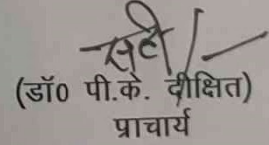 सही/-
(डॉ0 पी.के. दीक्षित)
प्राचार्य